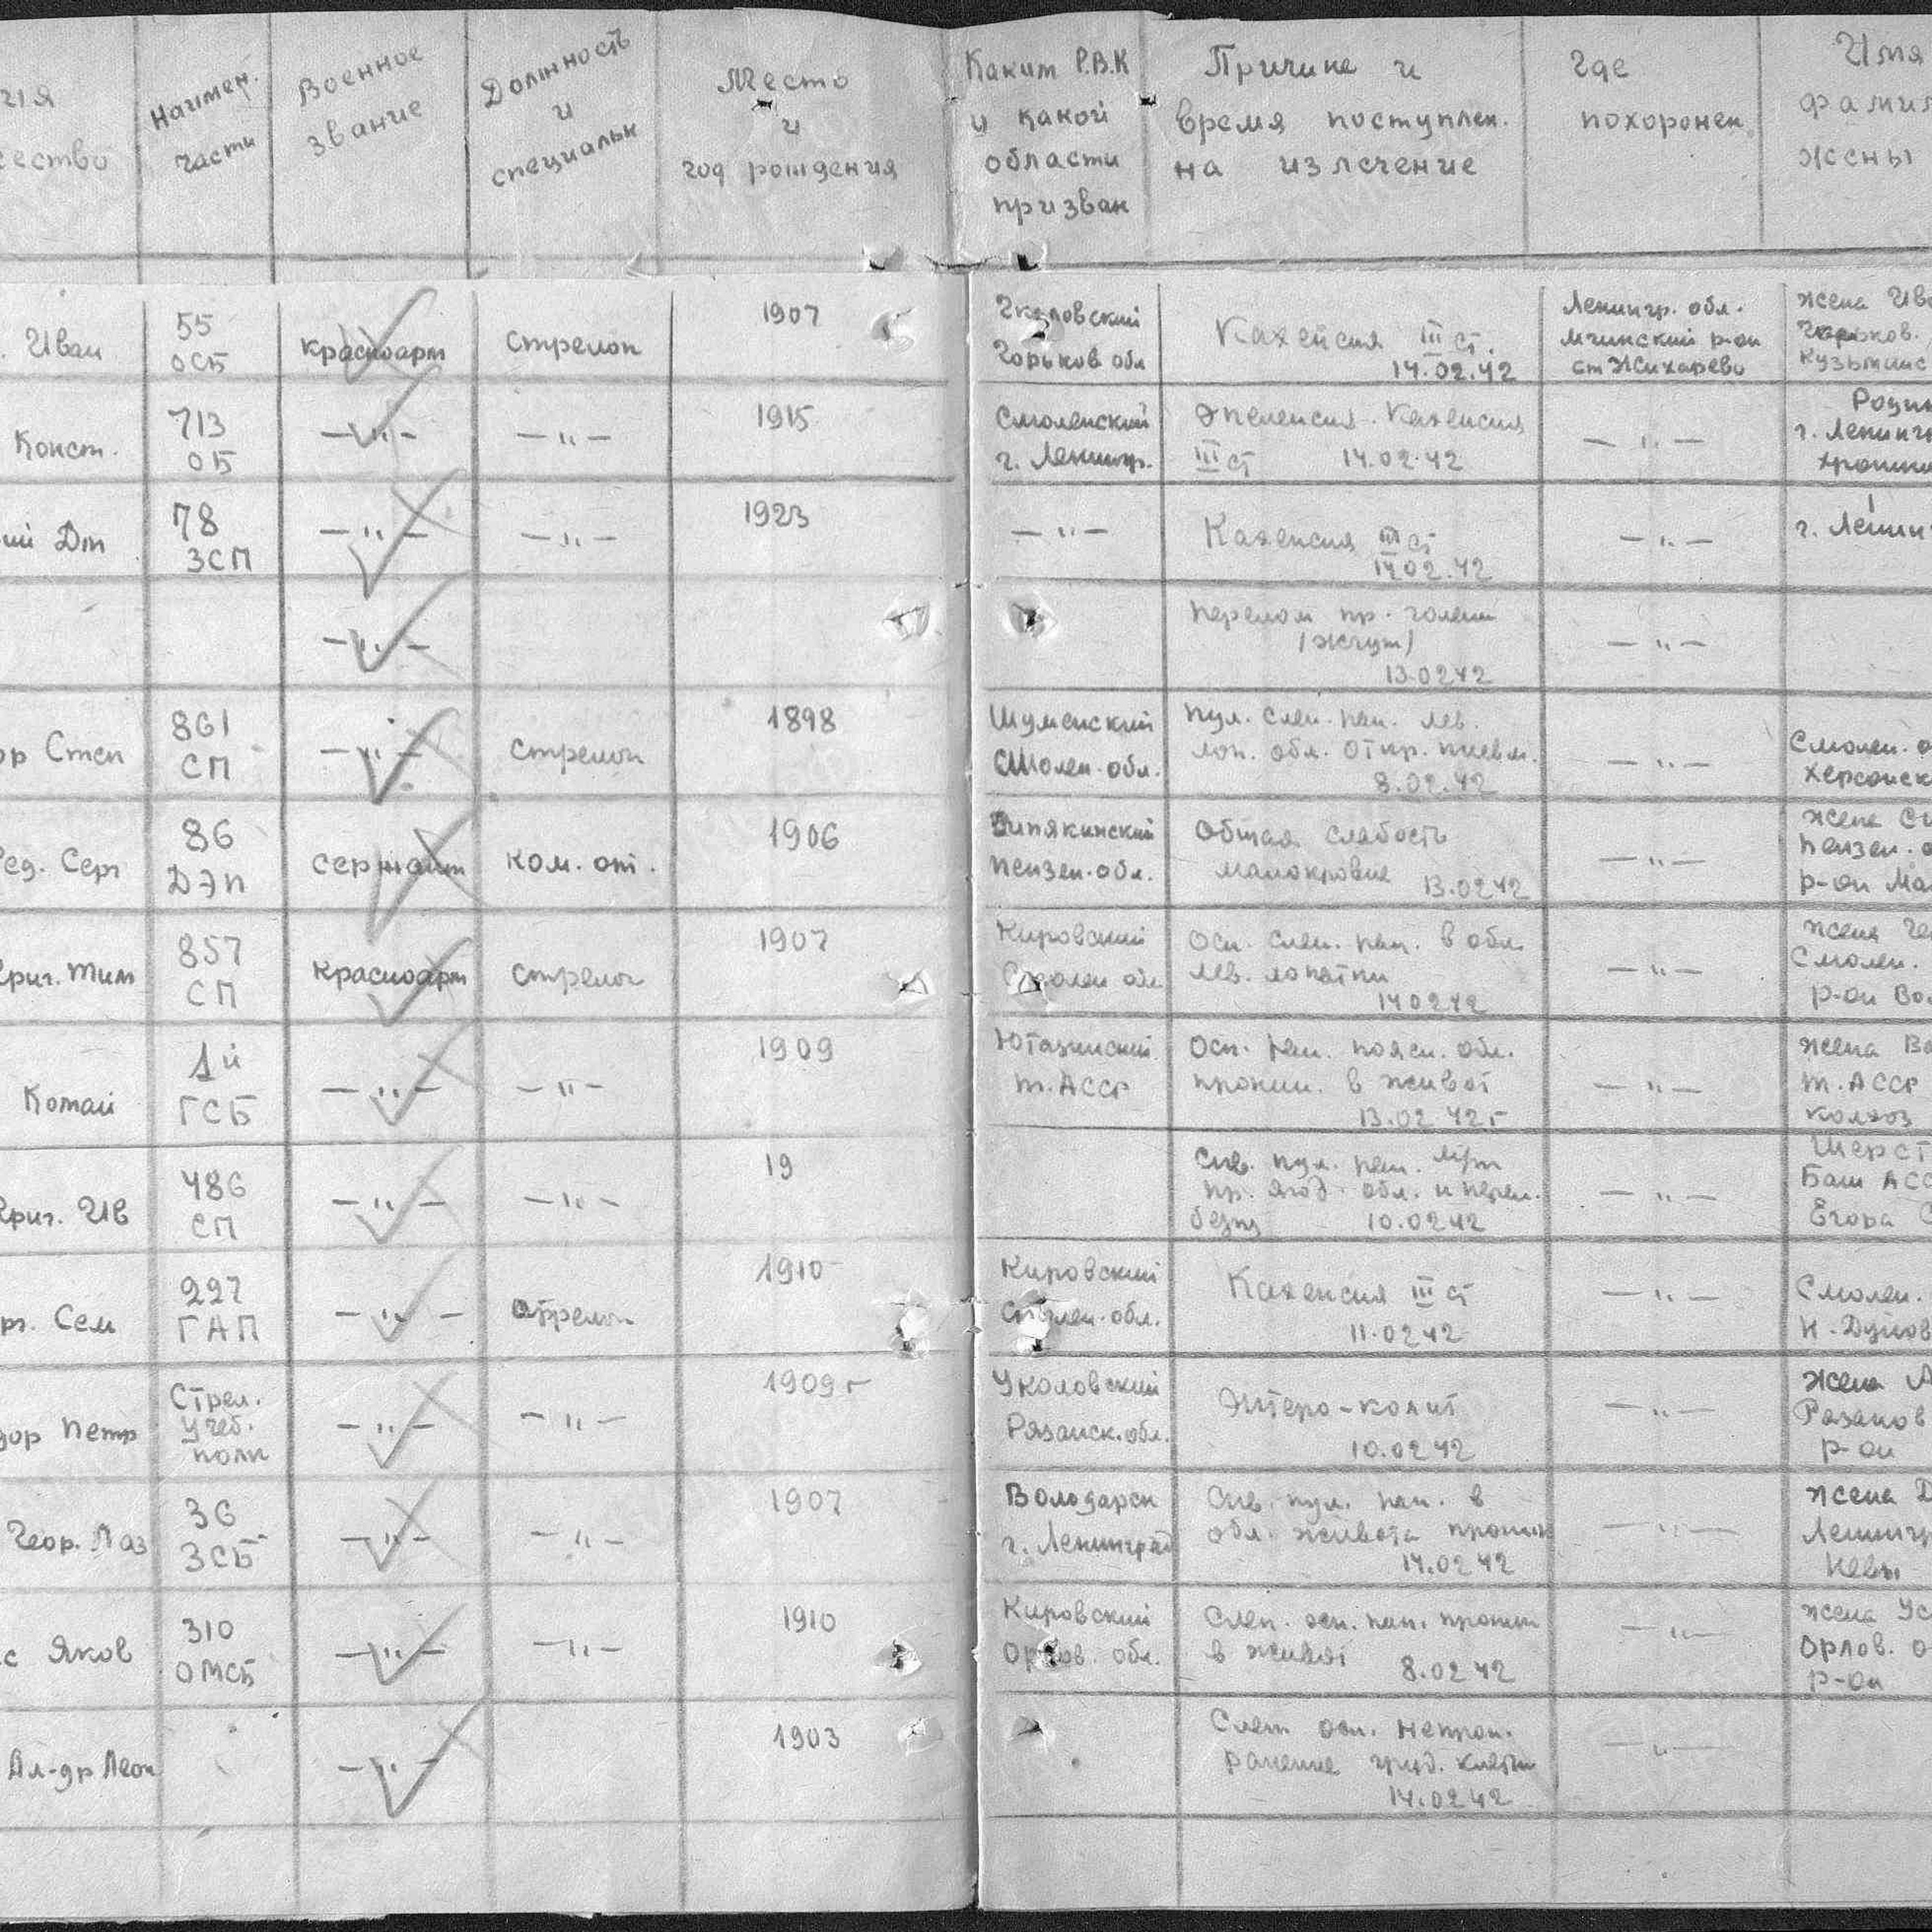 ия
чество
Наимен.
части
Военное
звание
Должность
и
специальн
Место
и
год рождения
Каким Р.В.К
и какой
области
призван
Причина и
время поступлен.
на излечение
Где
похоронен
Имя
фамил
жены
. Иван
55
ОСБ
красноарм
Стрелок
1907
Чкаловский
Горьков обл
Кахексия III ст.
14.02.42
Ленингр. обл.
Мгинский р-он
ст Жихарево
жена Ива
Горьков.
Кузьминс
Конст.
713
ОБ
— " —
— " —
1915
Смоленский
г. Ленингр.
Эпилепсия. Кахексия
III ст 14.02.42
— " —
Родит
г. Ленингр
ий Дм
78
ЗСП
— " —
— " —
1923
— " —
Кахексия III ст
14.02.42
— " —
г. Ленин
— " —
Перелом пр. голени
(жгут)
13.02.42
— " —
ор Степ
861
СП
— " —
стрелок
1898
Шуменский
Смолен. обл.
Пул. слеп. ран. лев.
лоп. обл. откр. пневм.
8.02.42
— " —
Смолен. о
Херсонск
ед. Серг
86
ДЭП
сержант
ком. от.
1906
Пензен. обл.
Общая слабость
малокровие 13.02.42
— " —
жена Си
Пензен. о
р-он Ма
риг. Тим
857
СП
Красноарм
стрелок
1907
Кировский
Смолен обл
Оск. слеп. ран. в обл.
лев. лопатки
14.02.42
— " —
жена Ге
Смолен.
р-он Вол
Котай
1й
ГСБ
— " —
— " —
1909
Ютазинский
Т. АССР
Оск. ран. поясн. обл.
проник. в живот
13.02.42 г
— " —
жена Ва
Т. АССР
колхоз
риг. Ив
486
СП
— " —
— " —
19
Скв. пул. ран. м/т
пр. ягод. обл. и перел.
бедра 10.02.42
— " —
Шерст
Баш АСС
Егора С
рг. Сем
227
ГАП
— " —
стрелок
1910
Кировский
Смолен. обл.
Кахексия III ст
11.02.42
— " —
Смолен.
Н. Дунов
дор Петр
Стрел.
учеб.
полк
— " —
— " —
1909 г
Уколовский
Рязанск. обл.
Энтеро-колит
10.02.42
— " —
жена А
Рязанов
р-он
Геор. Лаз
36
ЗСБ
— " —
— " —
1907
Володарск
г. Ленинград
Скв. пул. ран. в
обл. живота проник
14.02.42
— " —
жена Д
Ленингр
Невы
с Яков
310
ОМСБ
— " —
— " —
1910
Кировский
Орлов. обл.
Слеп. оск. ран. проник
в живот 8.02.42
— " —
жена Ус
Орлов. о
р-он
Ал-др Леон
— " —
1903
Слеп оск. непрон.
ранение груд. клетки
14.02.42
— " —